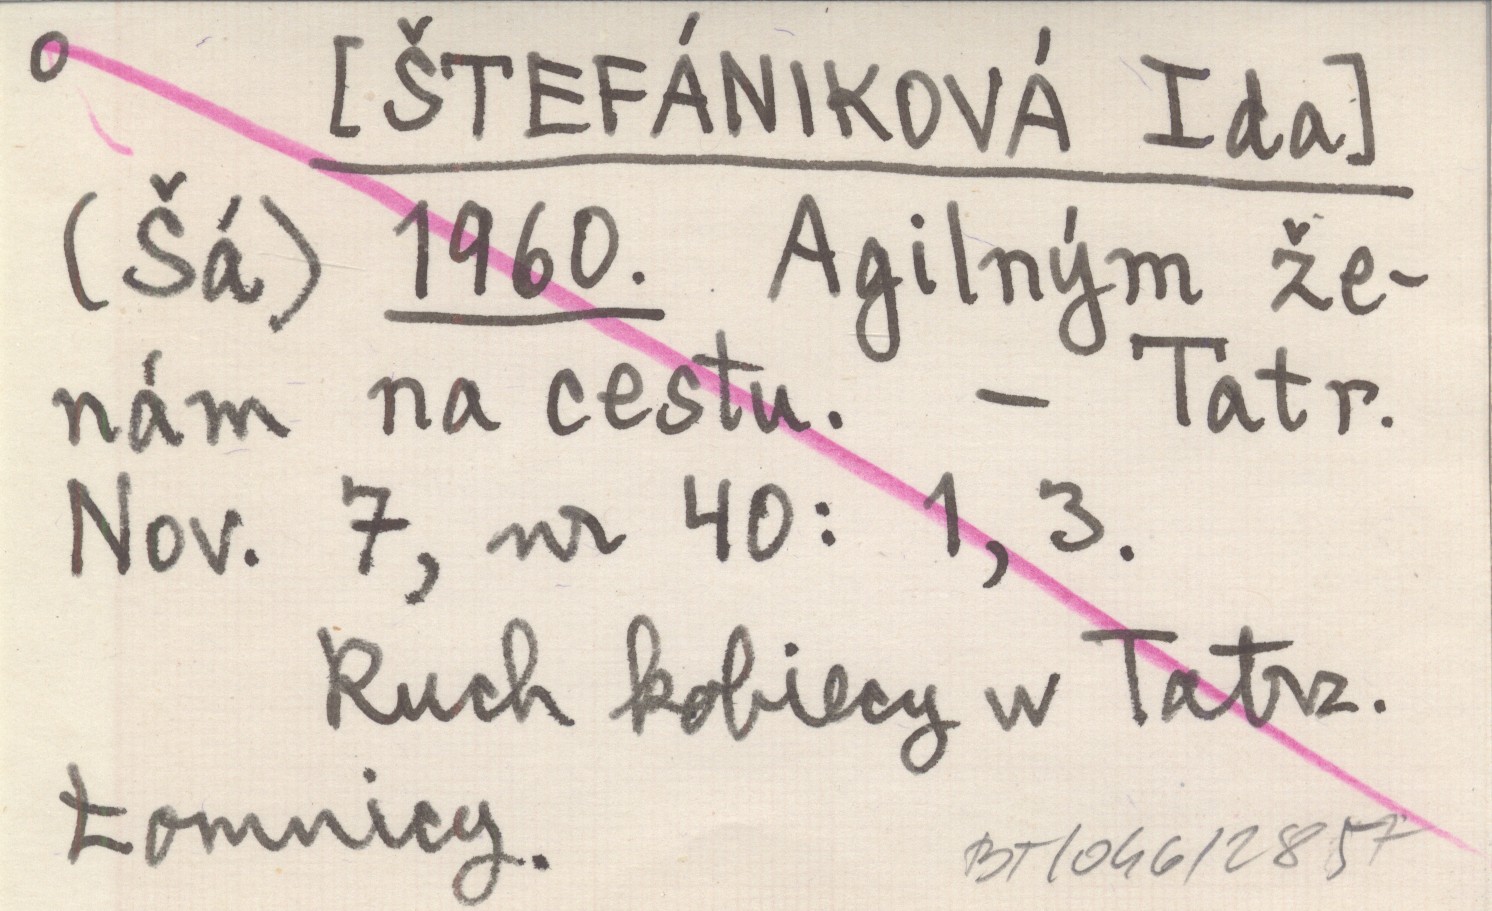 o [ŠTEFÁNIKOVÁ Ida]
(Šá) 1960. Agilným že-
nám na cestu. – Tatr.
Nov. 7, nr 40: 1, 3.
Ruch kobiecy w Tatrz.
Łomnicy.
BT/046/2857